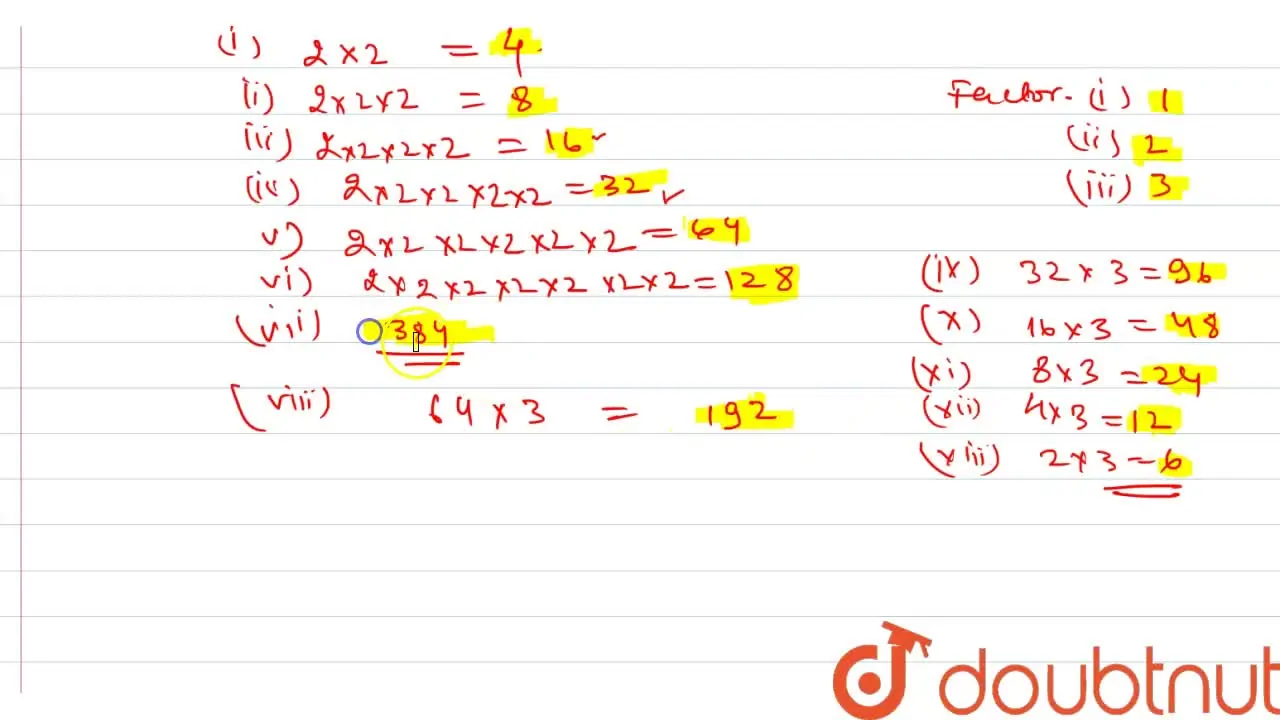 (i) 2 × 2 = 4
(ii) 2 × 2 × 2 = 8
(iii) 2 × 2 × 2 × 2 = 16
(iv) 2 × 2 × 2 × 2 × 2 = 32
v) 2 × 2 × 2 × 2 × 2 × 2 = 64
vi) 2 × 2 × 2 × 2 × 2 × 2 × 2 = 128
(vii) 384
(viii) 64 × 3 = 192
Factor. (i) 1
(ii) 2
(iii) 3
(ix) 32 × 3 = 96
(x) 16 × 3 = 48
(xi) 8 × 3 = 24
(xii) 4 × 3 = 12
(xiii) 2 × 3 = 6
doubtnut